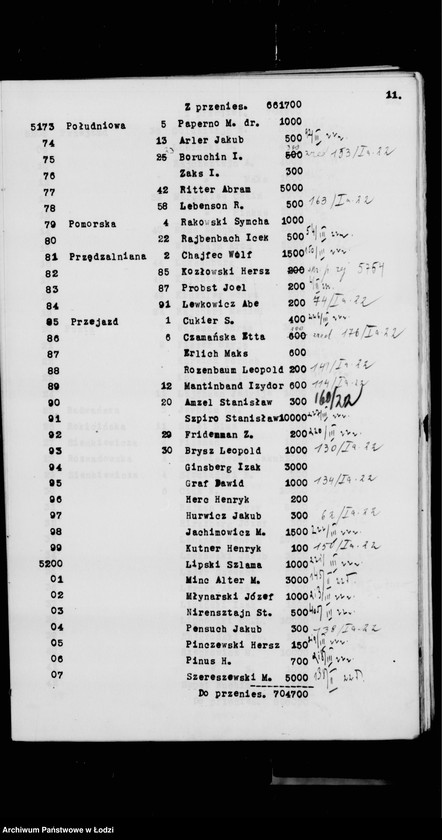 11.
Z przenies. 661700
5173 Południowa 5 Paperno M. dr. 1000
74 13 Arler Jakub 500
75 25 Boruchin I. 500 153/Ia.22
76 Zaks I. 300
77 42 Ritter Abram 5000
78 58 Lebenson R. 500 163/Ia.22
79 Pomorska 4 Rakowski Symcha 1000
80 22 Rajbenbach Icek 500
81 Przędzalniana 2 Chajfec Wolf 1500
82 85 Kozłowski Hersz 200 5764
83 87 Probst Joel 200
84 91 Lewkowicz Abe 200 74/Ia.22
85 Przejazd 1 Cukier S. 400
86 6 Czamańska Etta 600 176/Ia.22
87 Erlich Maks 600
88 Rozenbaum Leopold 200 147/Ia.22
89 12 Mantinband Izydor 600 114/Ia.22
90 20 Amzel Stanisław 300 160/2a
91 Szpiro Stanisław 10000
92 29 Fridenman Z. 200
93 30 Brysz Leopold 1000 130/Ia.22
94 Ginsberg Izak 3000
95 Graf Dawid 1000 134/Ia.22
96 Herc Henryk 200
97 Hurwicz Jakub 300 62/Ia.22
98 Jachimowicz M. 1500
99 Kutner Henryk 100 150/Ia.22
5200 Lipski Szlama 1000
01 Minc Alter M. 3000
02 Młynarski Józef 1000
03 Nirensztajn St. 500
04 Pensuch Jakub 300 138/Ia.22
05 Pinczewski Hersz 150
06 Pinus H. 700
07 Szereszewski M. 5000
Do przenies. 704700
Archiwum Państwowe w Łodzi